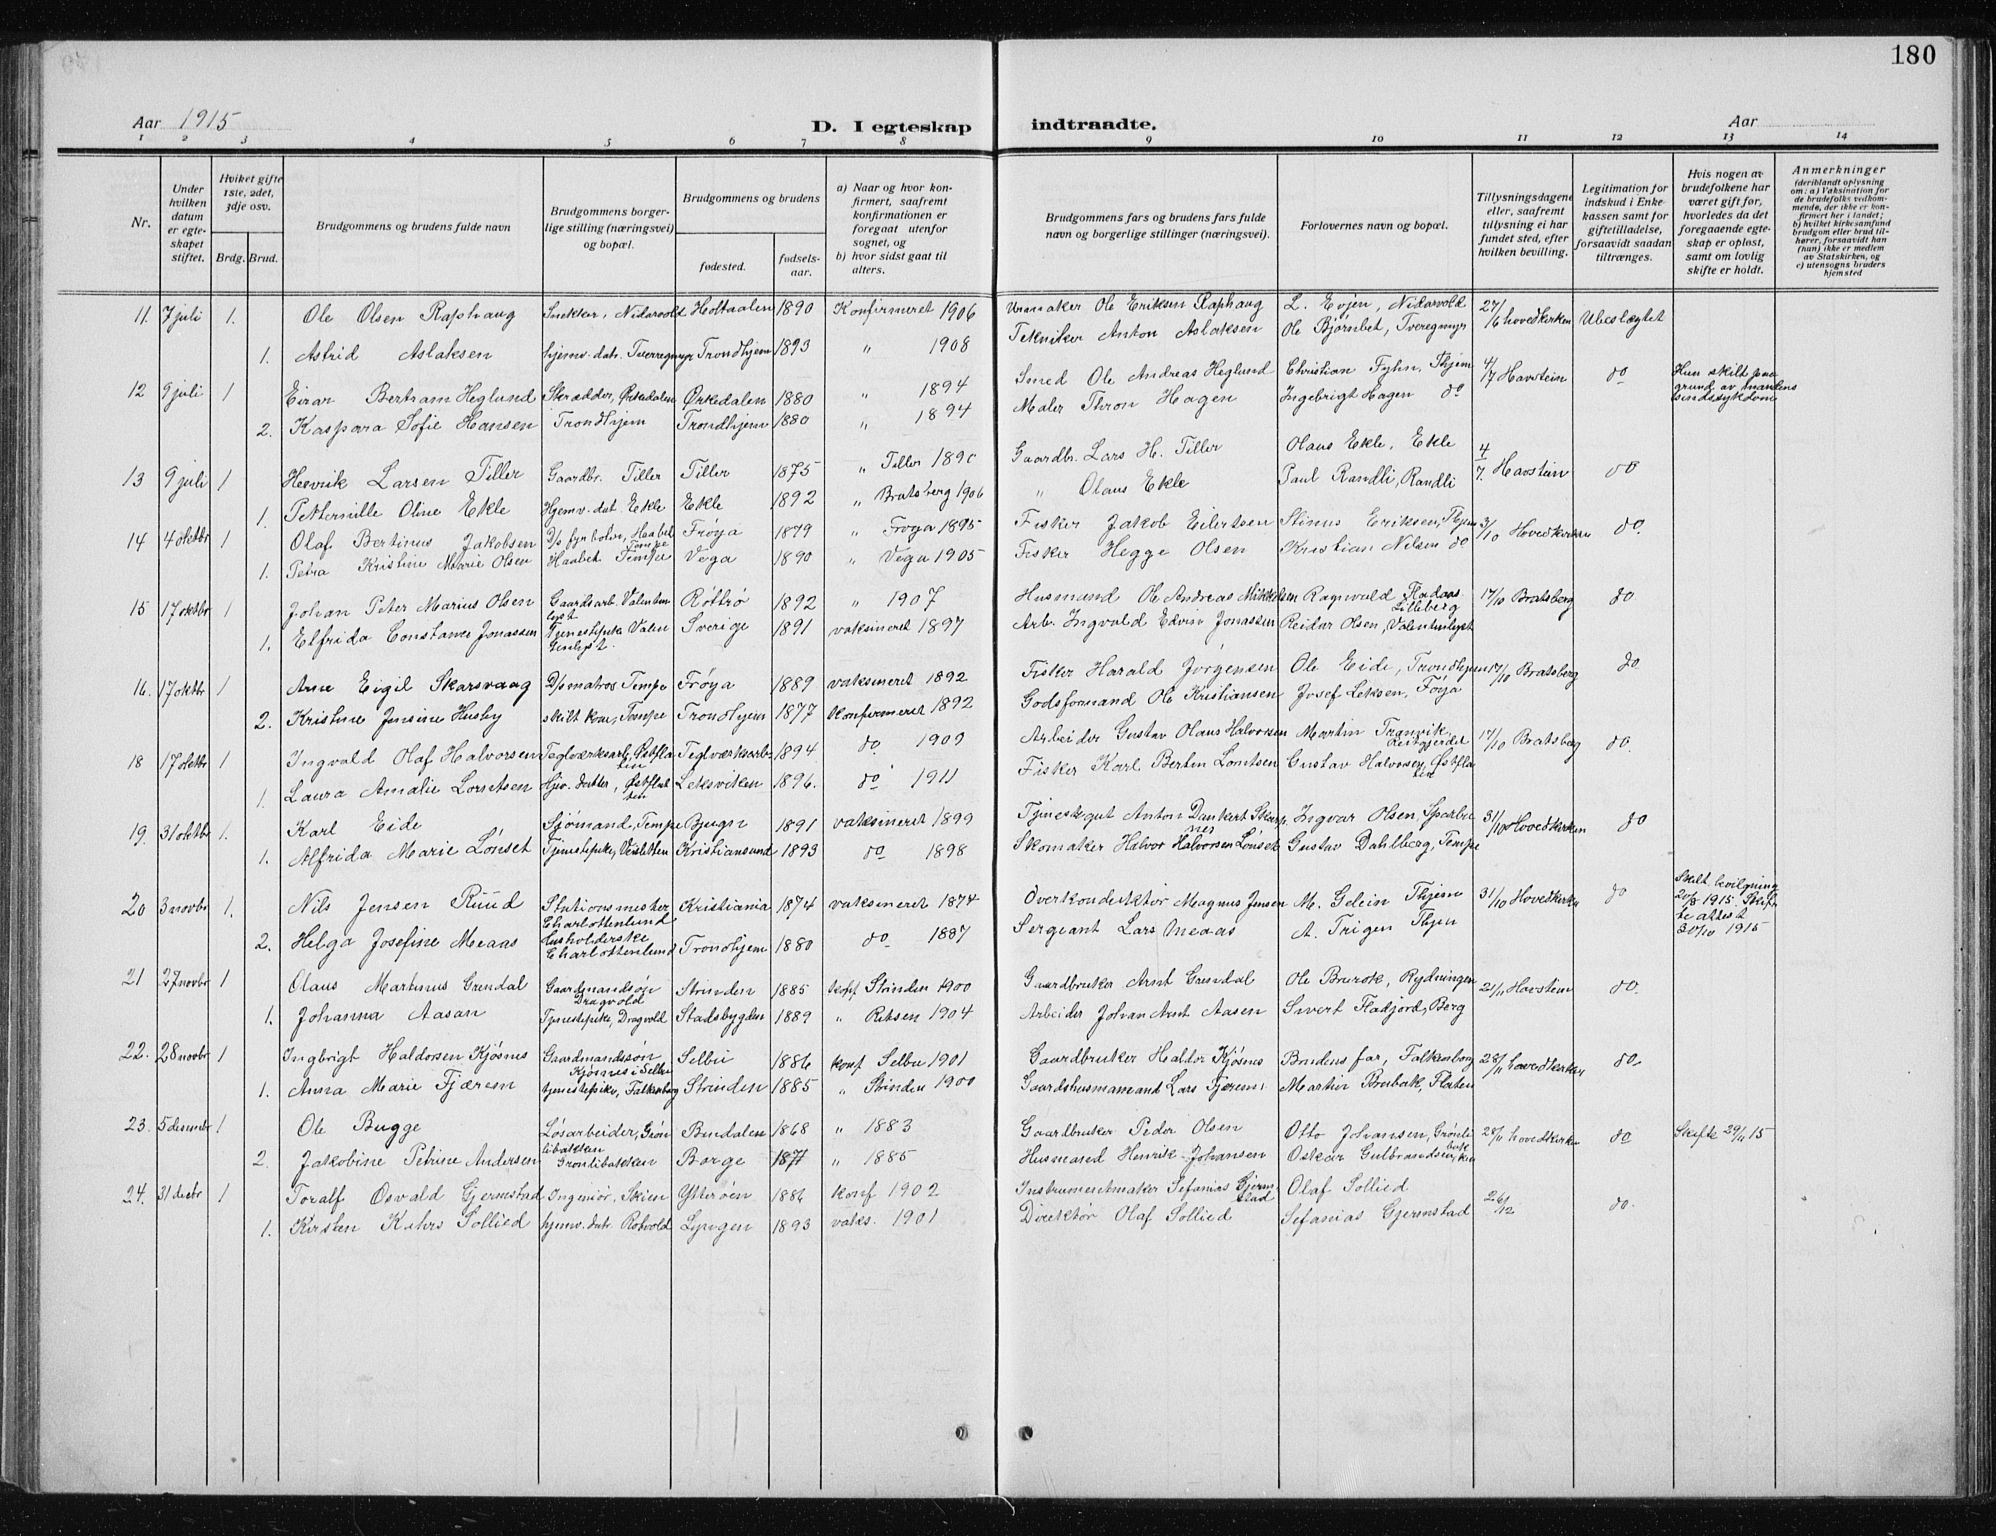 180
Aar 1915
D. I egteskap indtraadte.
Aar
1 2 3 4 5 6 7 8 9 10 11 12 13 14
Nr.
Under hvilken datum er egteskapet stiftet.
Hvilket gifte 1ste, 2det, 3dje osv.
Brdg. Brud.
Brudgommens og brudens fulde navn
Brudgommens borgerlige stilling (næringsvei) og bopæl.
Brudgommens og brudens
fødested.
fødselsaar.
a) Naar og hvor konfirmert, saafremt konfirmationen er foregaat utenfor sognet, og
b) hvor sidst gaat til alters.
Brudgommens fars og brudens fars fulde navn og borgerlige stillinger (næringsvei).
Forlovernes navn og bopæl.
Tillysningsdagene eller, saafremt tillysning ei har fundet sted, efter hvilken bevilling.
Legitimation for indskud i Enkekassen samt for giftetilladelse, forsaavidt saadan tiltrænges.
Hvis nogen av brudefolkene har været gift før, hvorledes da det foregaaende egteskap er opløst, samt om lovlig skifte er holdt.
Anmerkninger (deriblandt oplysning om: a) Vaksination for de brudefolks vedkommende, der ikke er konfirmert her i landet; b) hvilket kirkesamfund brudgom eller brud tilhører, forsaavidt han (hun) ikke er medlem av Statskirken, og c) utensogns bruders hjemsted
11. 7 juli 1. Ole Olsen Raphaug Snekker, Nidarvold Holtaalen 1890 Konfirmeret 1906 Urmaker Ole Eriksen Raphaug L. Evjen, Nidarvold 27/6 hovedkirken Ubeslægtet
1. Astrid Aslaksen hjemv. datr. Tveregmyr Trondhjem 1893 " 1908 Tekniker Anton Aslaksen Ole Bjørnbet, Tveregmyr
12 9 juli 1 Einar Bertram Heglund Skrædder, Orkedalen Ørkedalen 1880 " 1894 Smed Ole Andreas Heglund Christian Fyhn, Thjem 4/7 Havstein do Hun skilt paa grund av mandens sindssykdom
2. Kaspara Sofie Hansen Trondhjem Trondhjem 1880 " 1894 Maler Thron Hagen Ingebrigt Hagen do
13 9 juli 1 Henrik Larsen Tiller Gaardbr. Tiller Tiller 1875 " Tiller 1890 Gaardbr. Lars H. Tiller Olaus Ekle, Ekle 4/7. Havstein do
1. Petternille Oline Ekle Hjemv. dat. Ekle Ekle 1892 " Bratsberg 1906 " Olaus Ekle Paul Randli, Randli
14 4 oktbr 1 Olaf Bertinus Jakobsen D/s fyrbøter, Haabet Tempe Frøya 1879 " Frøya 1895 Fisker Jakob Eilertsen Stinus Eriksen, Thjem 3/10 Hovedkirken do.
1. Petra Kristine Marie Olsen Haabet Tempe Vega 1890 " Vega 1905 Fisker Hegge Olsen Kristian Nilsen do
15 17 oktbr 1 Johan Peter Marius Olsen Gaardsarb. Valentinlyst Røttrø 1892 " 1907 Husmand Ole Andreas Mikkelsen Ragnvald Fladaas Lilleberg 17/10 Bratsberg do
1. Elfrida Constance Jonassen Tjenestepike Valentinlyst. Sverige 1891 vaksineret 1897 Arb. Ingvald Edvin Jonassen Reidar Olsen, Valentinlyst
16. 17 oktbr 1 Arne Eigil Skarsvaag D/s matros Tempe Frøya 1889 vaksineret 1892 Fisker Harald Jørgensen Ole Eide, Trondhjem 17/10 Bratsberg do
2. Kristine Jensine Husby skilt kone, Tempe Trondhjem 1877 Konfirmeret 1892 Godsformand Ole Kristiansen Josef Leksen, Føya
18 17 oktbr 1 Ingvald Olaf Halvorsen Teglværksarb, Østflatten Teglværksarb 1894 do 1909 Arbeider Gustav Olaus Halvorsen Martin Tranvik, 17/10 Bratsberg do.
1. Laura Amalie Lorntsen Hjv. datter, Østflatten Leksviken 1896. do 1911 Fisker Karl Bertin Lorntsen Gustav Halvorsen, Østflaten
19. 31 oktbr 1. Karl Eide Sjømand, Tempe Bjugn 1891 vaksineret 1899 Tjenestegut Anton Dankert Skarpnes Ingvar Olsen Sparbu 31/10 Hovedkirken do
1. Alfrida Marie Lønset Tjenestepike, Veisletten Kristiansund 1893 do 1898 Skomaker Halvor Halvorsen Lønset Gustav Dahlberg, Tempe
20 3 novbr 1. Nils Jensen Ruud Stationsmester Charlottenlund Kristiania 1874 vaksineret 1874 Overkonduktør Magnus Jensen M. Gelein Thjem 31/10 Hovedkirken do Skilt bevilgning 20/8 1915. Skifte attest 30/10 1915
2. Helga Josefine Meaas Husholderske Charlottenlund Trondhjem 1880 do 1887 Sergeant Lars Meaas A. Trigen Thjem
21 27 novbr 1 Olaus Martinus Grendal Gaardmandsøn Dragvold Strinden 1885 konf Strinden 1900 Gaardbruker Arnt Grendal Ole Burok, Rydningen 21/11 Havstein do.
1. Johanna Aasan Tjenestepike, Dragvold Stadsbygden 1889 " Riksen 1904 Arbeider Johan Arnt Aasen Sivert Fladjord, Berg
22. 28 novbr 1 Ingbrigt Haldorsen Kjøsnes Gaardmandssøn Kjøsnes i Selbu Selbu 1886 konf Selbu 1901 Gaardbruker Haldor Kjøsnes Brudens far, Falkenborg 28/11 hovedkirken do
1. Anna Marie Tjærem tjenestepike, Falkenborg Strinden 1885 " Strinden 1900 Gaardshusmaend Lars Tjerem, Martin Brubak, Flaten
23. 5 desembr 1 Ole Bugge Løsarbeider, Grønlibakken Bindalen 1868 " 1883 Gaardbruker Peder Olsen Otto Johansen, Grønlibakken 28/11 hovedkirken do Skifte 29/11 15
2. Jakobine Petrine Andersen Grønlibakken Borge 1871 " 1885 Husmand Henrik Johansen Oskar Gulbrandsen
24. 31 decbr 1 Toralf Osvald Gjermstad Ingeniør, Skien Ytterøen 1886 konf 1902 Instrumentmaker Sefanias Gjermstad Olaf Sollied 26/12 do.
1. Kirsten Kahrs Sollied hjemv. datr. Rotvold Lyngen 1893 vaks. 1901 Direktør Olaf Sollied Sefanias Gjermstad